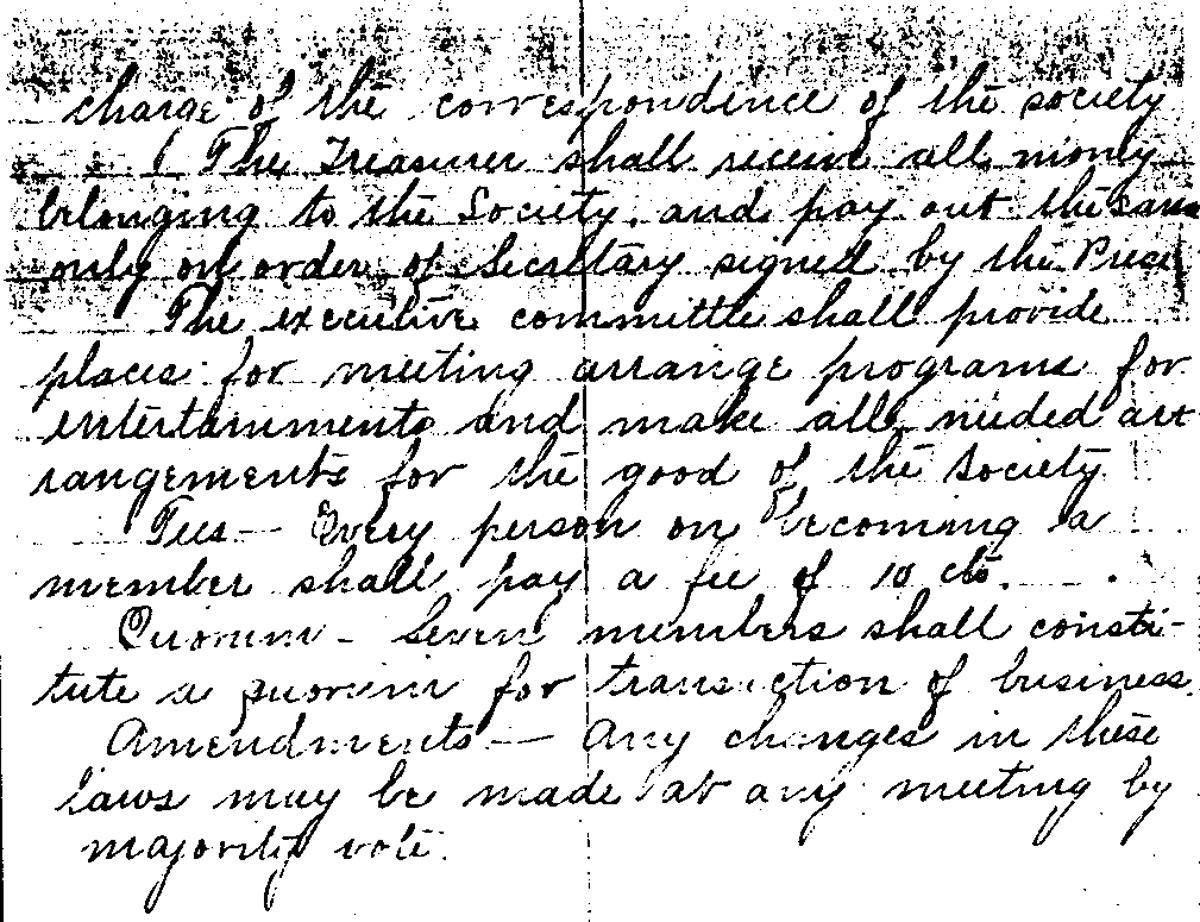 charge of the correspondence of the society
The Treasurer shall receive all money
belonging to the Society. and pay out the same
only on order of Secretary signed by the Pres
The executive committee shall provide
places for meeting arrange programs for
entertainments and make all needed ar
rangements for the good of the society
Fees — Every person on becoming a
member shall pay a fee of 10 cts.
Quorum — Seven members shall consti-
tute a quorum for transaction of business.
Amendments — Any changes in these
laws may be made at any meeting by
majority vote.